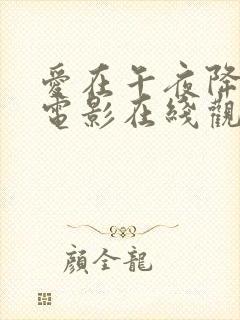 愛在午夜降
電影在綫觀
顔全龍